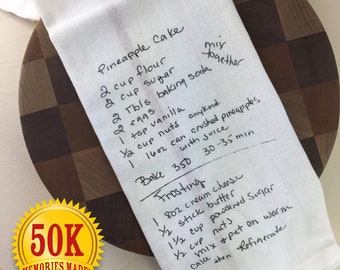 Pineapple Cake
2 cup flour
2 cup sugar
mix together
2 Tbls baking soda
2 eggs
1 tsp vanilla
1/2 cup nuts anykind
1 16oz can crushed pineapples
with juice
Bake 350 30-35 min
Frosting
8oz cream cheese
1/2 stick butter
1 1/2 cup powdered sugar
1/2 cup nuts
mix & put on warm
cake then Refrigerate
50K
MEMORIES MADE